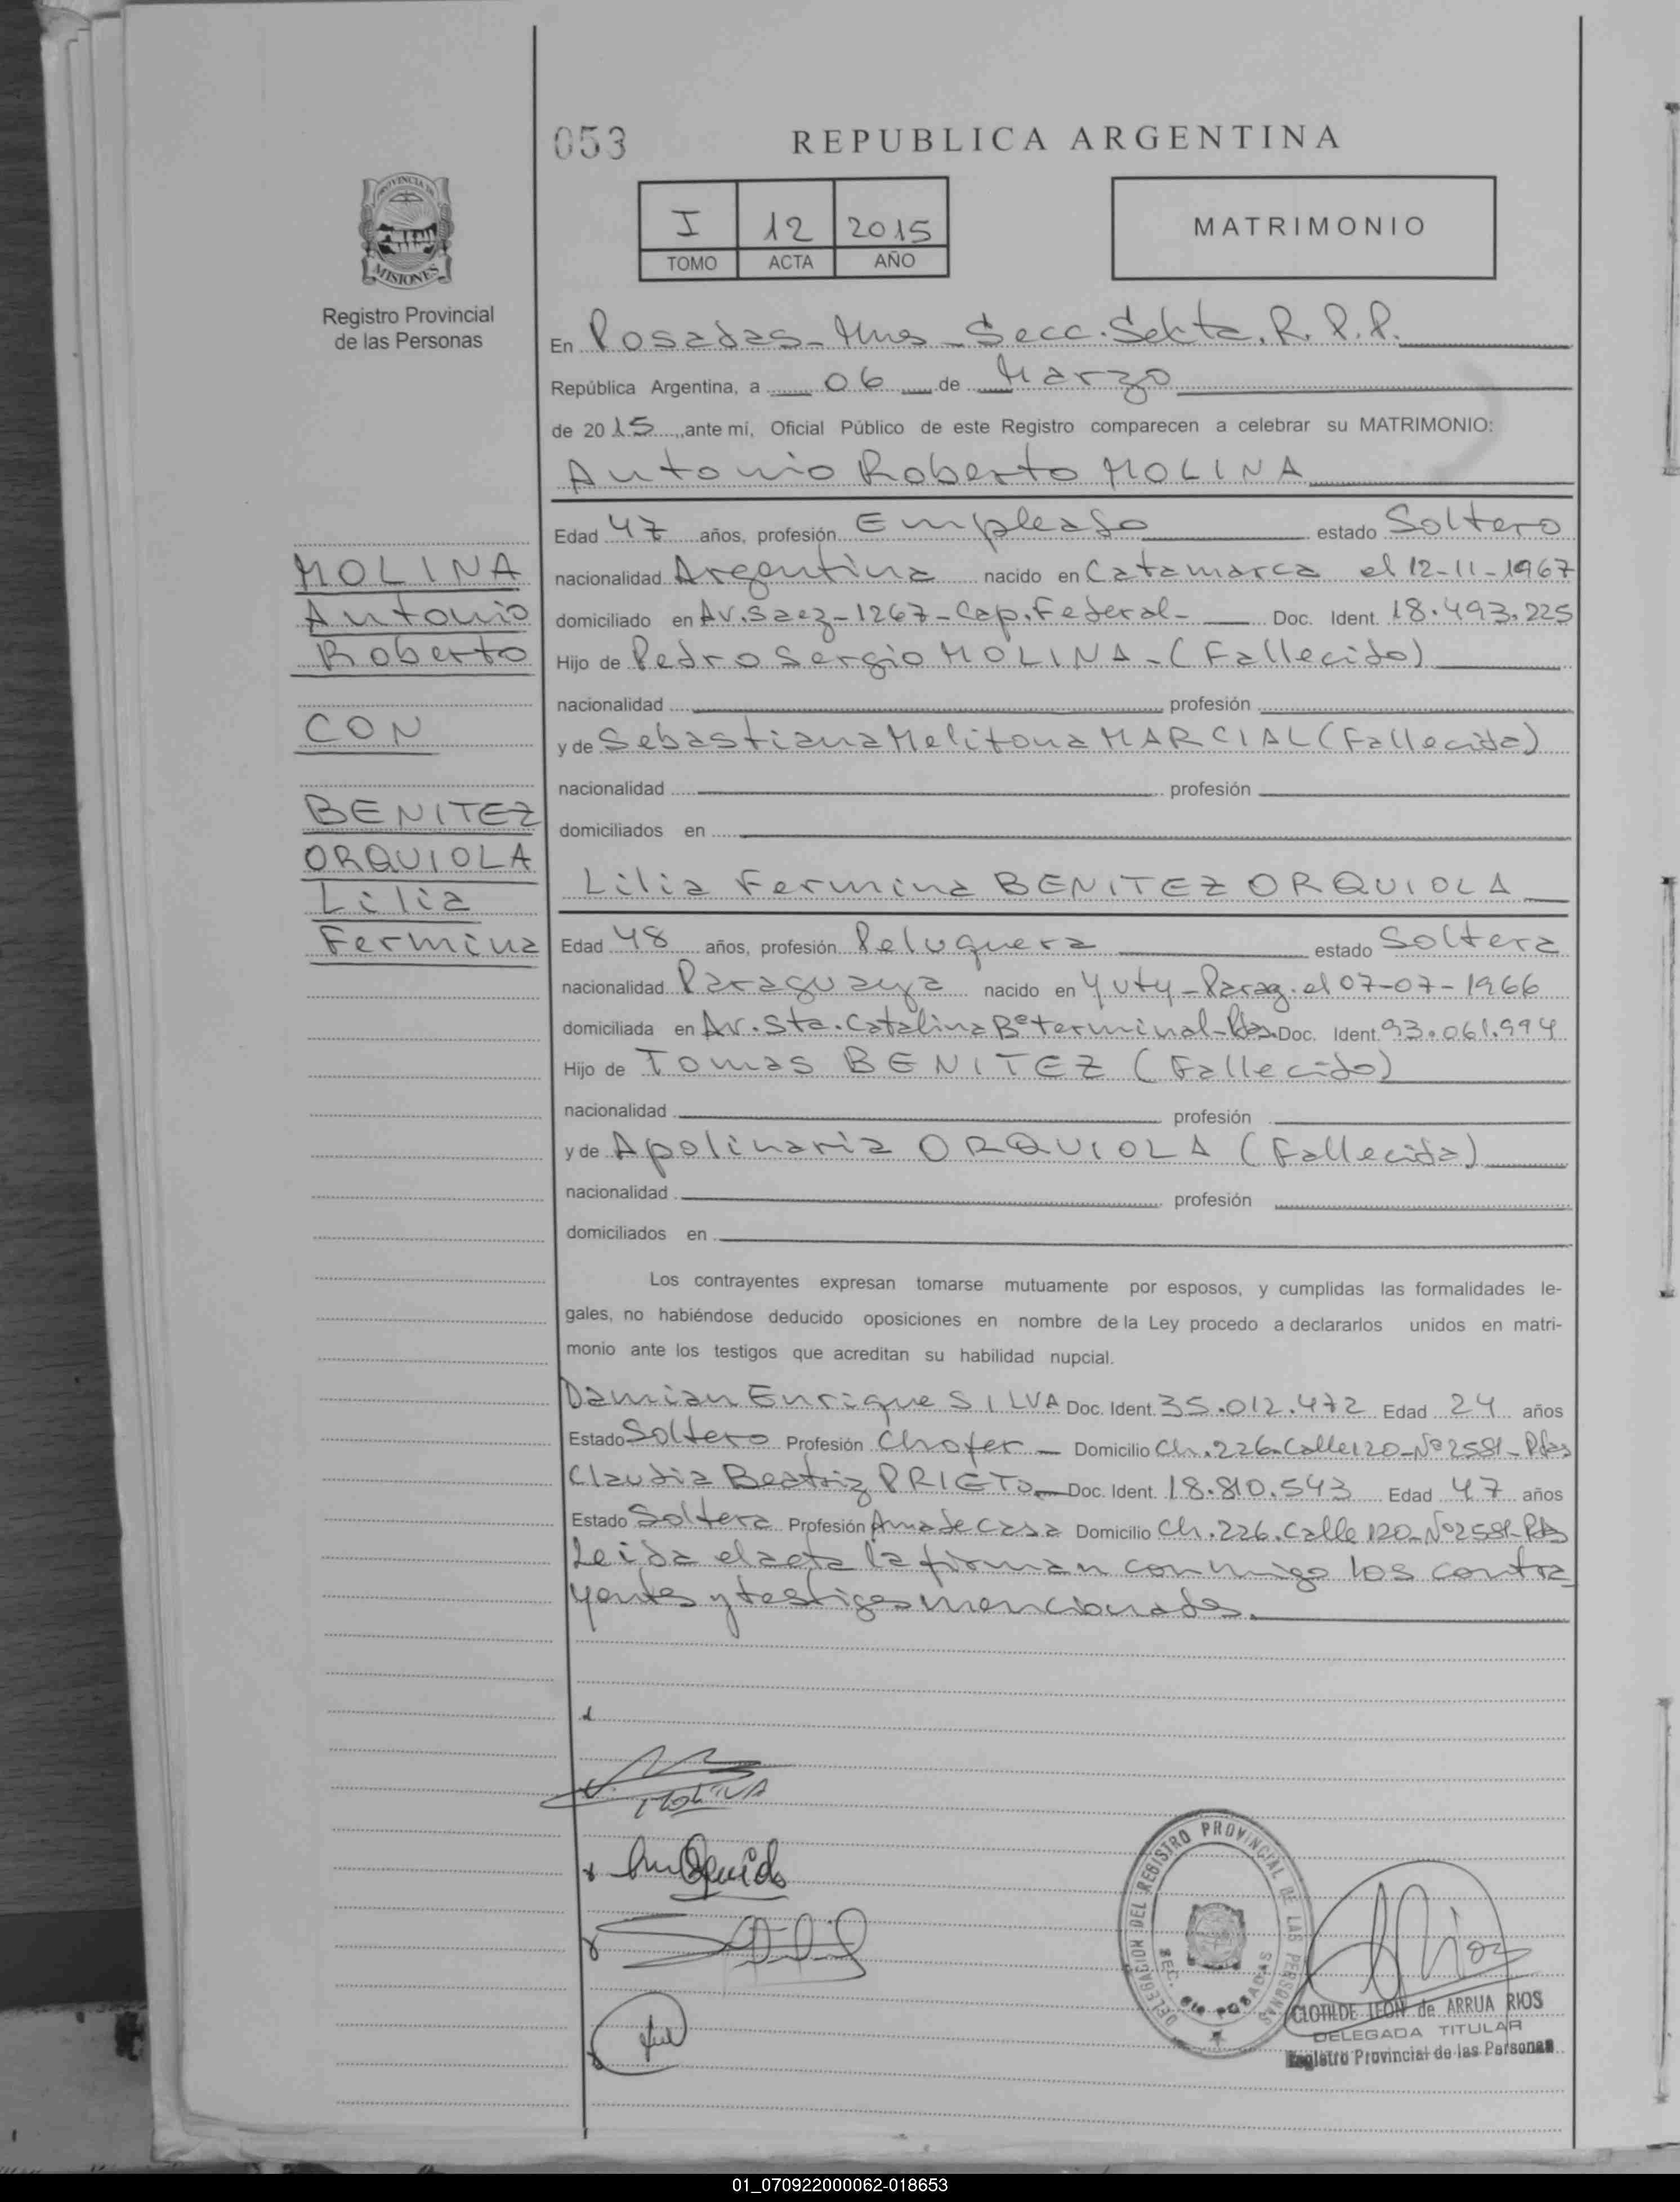 053
REPUBLICA ARGENTINA
PROVINCIA DE
MISIONES
Registro Provincial
de las Personas
I 12 2015
TOMO ACTA AÑO
MATRIMONIO
En Posadas - Mnes - Secc. Sexta. R. P. P.
República Argentina, a 06 de Marzo
de 2015, ante mí, Oficial Público de este Registro comparecen a celebrar su MATRIMONIO:
Antonio Roberto MOLINA
Edad 47 años, profesión Empleado estado Soltero
MOLINA
nacionalidad Argentina nacido en Catamarca el 12-11-1967
Antonio
domiciliado en Av. Saez - 1267 - Cap. Federal - Doc. Ident. 18.493.225
Roberto
Hijo de Pedro Sergio MOLINA - (Fallecido)
nacionalidad profesión
CON
y de Sebastiana Melitona MARCIAL (Fallecida)
nacionalidad profesión
BENITEZ
domiciliados en
ORQUIOLA
Lilia Fermina BENITEZ ORQUIOLA
Lilia
Fermina
Edad 48 años, profesión Peluquera estado Soltera
nacionalidad Paraguaya nacido en Yuty - Parag. el 07-07-1966
domiciliada en Av. Sta. Catalina Bº terminal - Pdas. Doc. Ident. 93.061.994
Hijo de Tomas BENITEZ (Fallecido)
nacionalidad profesión
y de Apolinaria ORQUIOLA (Fallecida)
nacionalidad profesión
domiciliados en
Los contrayentes expresan tomarse mutuamente por esposos, y cumplidas las formalidades le-
gales, no habiéndose deducido oposiciones en nombre de la Ley procedo a declararlos unidos en matri-
monio ante los testigos que acreditan su habilidad nupcial.
Damian Enrique SILVA Doc. Ident. 35.012.472 Edad 24 años
Estado Soltero Profesión Chofer - Domicilio Ch. 226. Calle 120 - Nº 2581 - Pdas
Claudia Beatriz PRIETO - Doc. Ident. 18.810.543 Edad 47 años
Estado Soltera Profesión Ama de casa Domicilio Ch. 226. Calle 120 - Nº 2581 - Pdas
Leida el acta la firman conmigo los contra
yentes y testigos mencionados.
MOLINA
DELEGACION DEL REGISTRO PROVINCIAL DE LAS PERSONAS
SEC. 6ta POSADAS
CLOTILDE LEON de ARRUA RIOS
DELEGADA TITULAR
Registro Provincial de las Personas
01_070922000062-018653